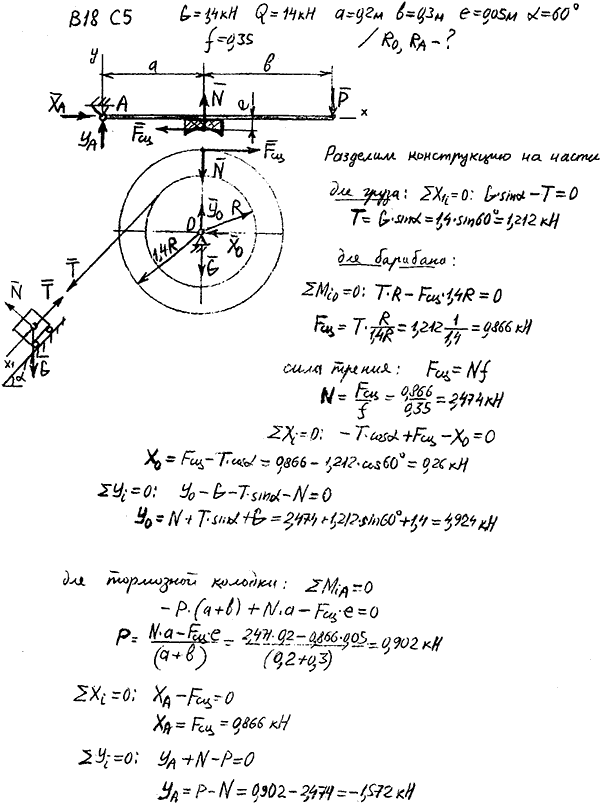 В18 С5 G=1,4кН Q=14кН a=0,2м в=0,3м e=0,05м α=60°
f=0,35 / R₀, R_A – ?
y a в
X̄_A A N̄ e P̄ x
Y_A F̄сц
F̄сц
N̄
Разделим конструкцию на части
для груза: ΣX₁ᵢ=0: G·sinα–T=0
T=G·sinα=1,4·sin60°=1,212 кН
Ȳ₀ R
O X̄₀
1,4R Ḡ
T̄
N̄ T̄
x₁ α Ḡ
для барабана:
ΣMᵢ₀=0: T·R–Fсц·1,4R=0
Fсц=T·R/1,4R=1,212·1/1,4=0,866 кН
сила трения: Fсц=Nf
N=Fсц/f=0,866/0,35=2,474 кН
ΣXᵢ=0: –T·cosα+Fсц–X₀=0
X₀=Fсц–T·cosα=0,866–1,212·cos60°=0,26 кН
ΣYᵢ=0: Y₀–G–T·sinα–N=0
Y₀=N+T·sinα+G=2,474+1,212·sin60°+1,4=4,924 кН
для тормозной колодки: ΣMᵢ_A=0
–P·(a+в)+N·a–Fсц·e=0
P=N·a–Fсц·e/(a+в)=2,474·0,2–0,866·0,05/(0,2+0,3)=0,902 кН
ΣXᵢ=0: X_A–Fсц=0
X_A=Fсц=0,866 кН
ΣYᵢ=0: Y_A+N–P=0
Y_A=P–N=0,902–2,474=–1,572 кН